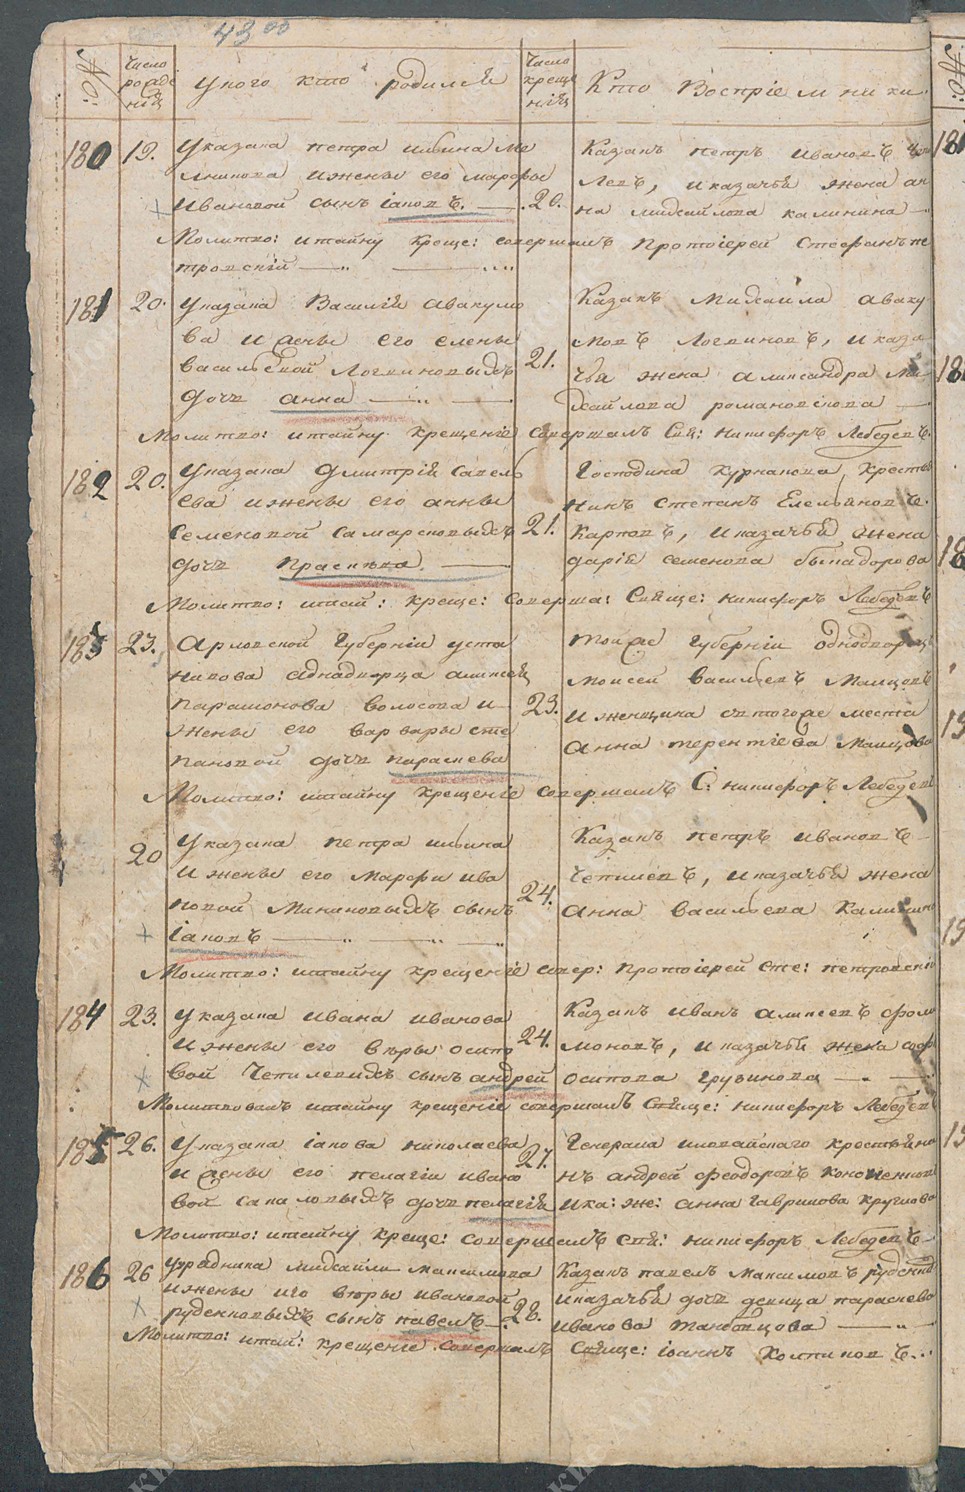 №:
Число рожде нія
У кого кто родился
Число креще нія
Кто Восприемники
180 19. Указака петра ильина Ми
нинова ижены его марфы
ивановой сынъ іаковъ. 20.
Казакъ петръ ивановъ
левъ, и казачья жена ан
на михайлова калинина
Молитво: итайну креще: совершалъ Протоіерей Стефанъ пе
тровскій
181 20. Указака Василія авакумо
ва и жены его елены
васильевой Логвиновыхъ
дочь анна 21.
Казакъ михайла аваку
мовъ Логвиновъ, и каза
чья жена александра ми
хайлова романовскова
Молитво: итайну крещенія совершалъ Свя: никифоръ Лебедевъ.
182 20. Указака дмитрія савель
ева ижены его анны
семеновой самарсковыхъ
дочь Прасковa. 21.
Господина курнакова крестья
нинъ степанъ Емельяновъ
карповъ, и казачья жена
дарія семенова быкадорова
Молитво: итай: креще: соверша: Свяще: никифоръ Лебедевъ
183 23. Арловской Губерніи уста
никова аднадворца алексея
парамонова волосова и
жены его варвары сте
пановой дочь параскева 23.
тойже Губерніи однодворецъ
моисей васильевъ Малцовъ
и женщина стогоже места
анна терентіева Малцова
Молитво: итайну крещеніе совершалъ С: никифоръ Лебедевъ
20 Указака петра ильина
ижены его марфи ива
новой Мининовыхъ сынъ
іаковъ 24.
Казакъ петръ ивановъ
Чепилевъ, и казачья жена
анна васильева калинина
Молитво: итайну крещеніе совер: протоіерей сте: петровскій
184 23. Указака ивана иванова
ижены его веры осипо
вой Чепилевихъ сынъ андрей 24.
Казакъ иванъ алексеевъ фроли
моновъ, и казачья жена
осипова грузинова
Молитвовалъ итайну крещеніе совершалъ Свяще: никифоръ Лебедевъ
185 26. Указака іакова николаева
и жены его пелагіи ивано
вой сакаловыхъ дочь пелагія 27.
Генерала иловайскаго крестьяни
нъ андрей феодоровъ
ика: же: анна гаврилова круглова
Молитво: итайну креще: совершалъ свя: никифоръ Лебедевъ
186 26 урядника михайли максимова
ижены иго веры ивановой
руденковыхъ сынъ павелъ 28.
Казакъ павелъ максимовъ руденковъ
и казачья дочь девица параскева
иванова
Молитво: итай: крещеніе совершалъ Свяще: іоаннъ Колпиковъ